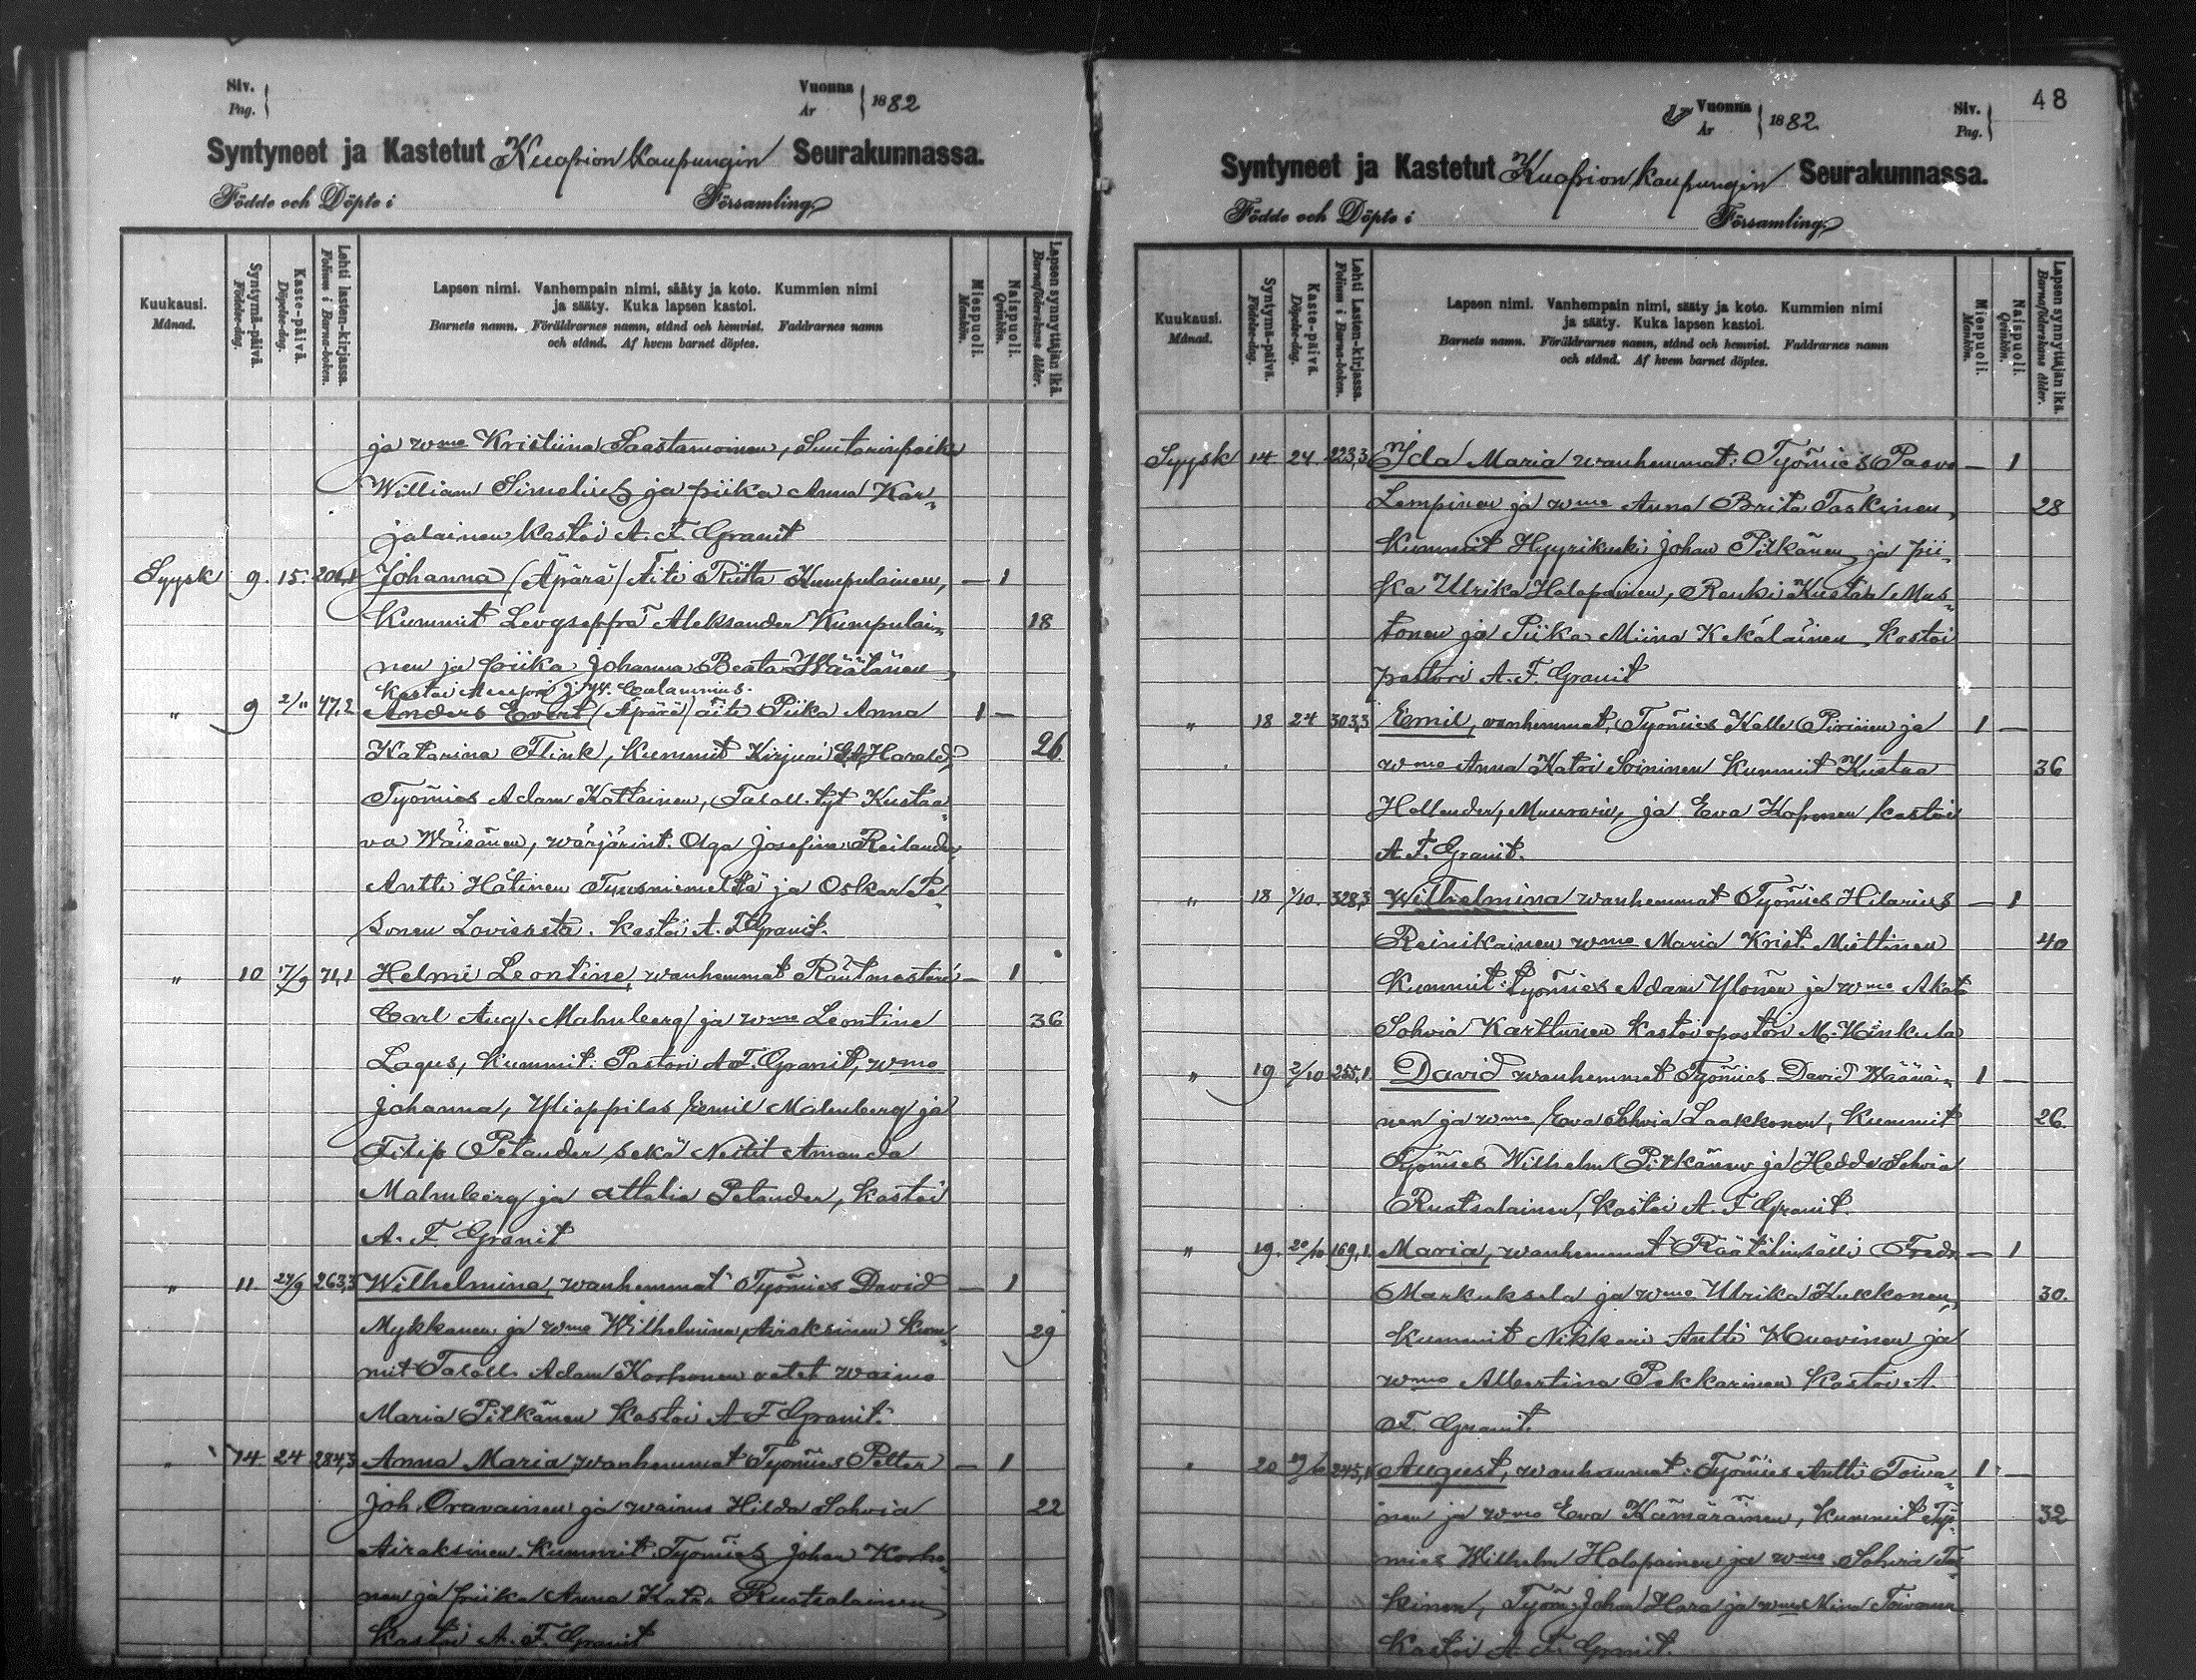 Siv.
Pag.
Vuonna
År
1882
Syntyneet ja Kastetut Kuopion kaupungin Seurakunnassa.
Födde och Döpte i Församling.
Kuukausi.
Månad.
Syntymä-päivä.
Födelse-dag.
Kaste-päivä.
Döpelse-dag.
Lehti lasten-kirjassa.
Folium i Barna-boken.
Lapsen nimi. Vanhempain nimi, sääty ja koto. Kummien nimi
ja sääty. Kuka lapsen kastoi.
Barnets namn. Föräldrarnes namn, stånd och hemvist. Faddrarnes namn
och stånd. Af hvem barnet döptes.
Miespuoli.
Mankön.
Naispuoli.
Qvinkön.
Lapsen synnyttäjän ikä.
Barnaföderskans ålder.
ja wmo Kristiina Saastamoinen, Suutarinpoika
William Simelius ja piika Anna Kar„
jalainen kastoi A. F. Granit
Syysk 9. 15. 204,1 Johanna (Äpärä) Äiti Riitta Kumpulainen, — 1
Kummit Levgseppä Aleksander Kumpulai„ 18
nen ja piika Johanna Beata Väätänen,
kastoi J. W. Calamnius.
„ 9 2/11 47,2 Anders Evert (Äpärä) äiti Piika Anna 1 —
Katarina Flink, Kummit Kirjuri Harald, 26
Työmies Adam Kattainen, Taloll. tyt Kustaa„
va Wäisänen, wärjärint. Olga Josefina Reilander,
Antti Hätinen Tuusniemeltä ja Oskar Pe„
sonen Loviisasta. kastoi A. F. Granit.
„ 10 17/9 71,1 Helmi Leontine, wanhemmat Räntmestari — 1
Carl Aug. Malmberg ja wmo Leontine 36
Lagus, Kummit: Pastori A. F. Granit, wmo
Johanna, Ylioppilas Emil Malmberg ja
Filip Petander sekä Neitit Amanda
Malmberg ja Attalia Petander, kastoi
A. F. Granit
„ 11. 24/9 263,3 Wilhelmina, wanhemmat Työmies David — 1
Mykkanen ja wmo Wilhelmina Airaksinen kum„ 29
mit Taloll. Adam Korhonen waimo
Maria Pitkänen kastoi A F Granit.
„ 14. 24 284,3 Anna Maria wanhemmat Työmies Petter — 1
Joh. Oravainen ja waimo Hilda Sohvia 22
Airaksinen. Kummit. Työmies Johan Korho„
nen ja piika Anna Katr. Ruotsalainen
kastoi A. F. Granit
Vuonna
År
1882
Siv.
Pag.
48
Syntyneet ja Kastetut Kuopion kaupungin Seurakunnassa.
Födde och Döpte i Församling.
Kuukausi.
Månad.
Syntymä-päivä.
Födelse-dag.
Kaste-päivä.
Döpelse-dag.
Lehti Lasten-kirjassa.
Folium i Barna-boken.
Lapsen nimi. Vanhempain nimi, sääty ja koto. Kummien nimi
ja sääty. Kuka lapsen kastoi.
Barnets namn. Föräldrarnes namn, stånd och hemvist. Faddrarnes namn
och stånd. Af hvem barnet döptes.
Miespuoli.
Mankön.
Naispuoli.
Qvinkön.
Lapsen synnyttäjän ikä.
Barnaföderskans ålder.
Syysk 14 24. 223,3 Ida Maria wanhemmat: Työmies Paavo — 1
Lempinen ja wmo Anna Brita Taskinen, 28
Kummit Hyyrikuski Johan Pitkänen ja pii„
ka Ulrika Holopainen, Renki Kustaa Mus„
tonen ja Piika Miina Kekäläinen, kastoi
pastori A. F. Granit
„ 18 24 303,3 Emil, vanhemmat, Työmies Kalle Piirinen ja 1 —
wmo Anna Katri Soininen Kummit Kustaa 36
Hollender, Muurari, ja Eva Koponen kastoi
A. F. Granit.
„ 18 1/10. 328,3 Wilhelmina wanhemmat Työmies Hilarius — 1
Reinikainen wmo Maria Krist. Miettinen 40
Kummit: työmies Adam Ylönen ja wmo Akat
Sohvia Karttunen kastoi pastori M. Hinkula
„ 19 2/10 255,1 David wanhemmat Työmies David Väänä„ 1 —
nen ja wmo Eva Sohvia Laakkonen, Kummit 26.
Työmies Wilhelm Pitkänen ja Hedda Sohvia
Ruotsalainen, kastoi A. F Granit.
„ 19. 20/10 169,1 Maria, wanhemmat Räätälinsälli Fredr — 1
Markuksela ja wmo Ulrika Kukkonen, 30.
Kummit Nikkari Antti Kuovinen ja
wmo Albertina Pekkarinen kastoi A.
F. Granit.
„ 20 245,1 August, wanhemmat: Työmies Antti Toiva„ 1 —
nen ja wmo Eva Kämäräinen, Kummit Työ„ 32
mies Wilhelm Holopainen ja wmo Sohvia
kinen, Työm. Johan Hara ja wmo Mina Toivanen
kastoi A. F. Granit.